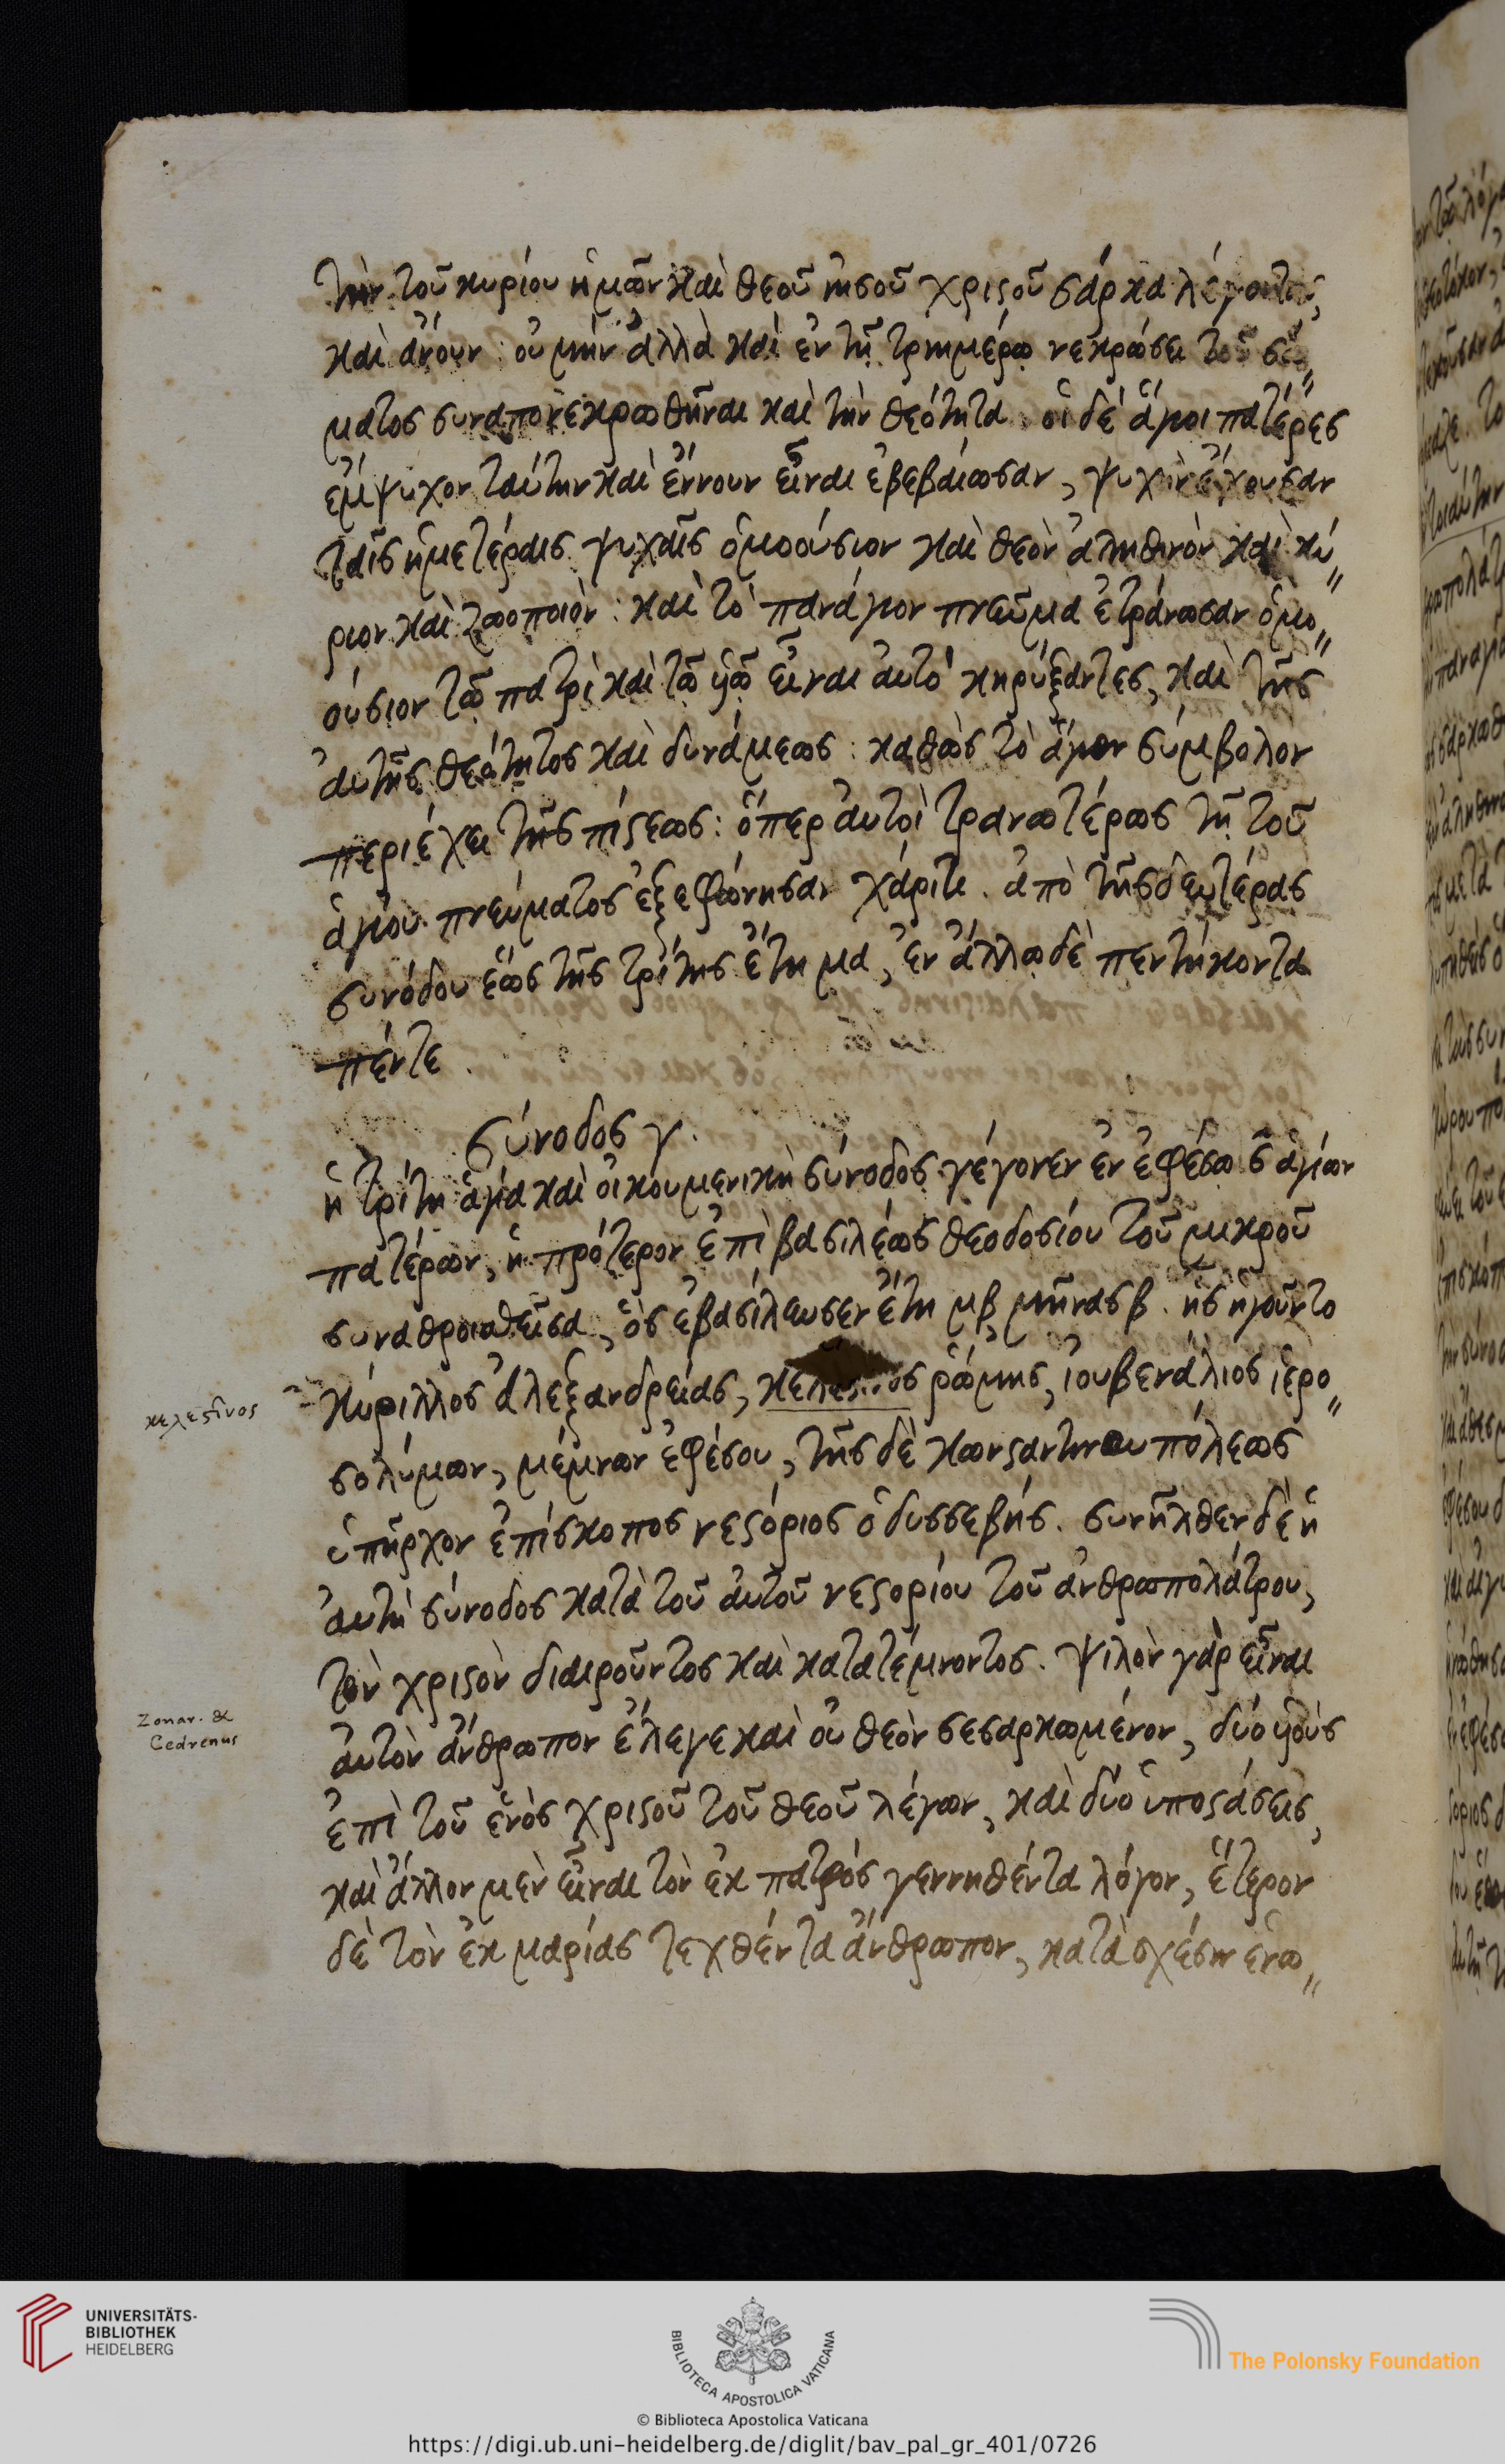 τὴν τοῦ κυρίου ἡμῶν καὶ θεοῦ ἰησοῦ χριϛοῦ σάρκα λέγοντες
καὶ ἄνουν: οὐ μὴν ἀλλὰ καὶ ἐν τῇ τριημέρω νεκρώσει τοῦ σώ„
ματος συναπονεκρωθῆναι καὶ τὴν θεότητα. οἱ δὲ ἅγιοι πατέρες
ἔμψυχον ταύτην καὶ ἔννουν εἶναι ἐβεβαίωσαν, ψυχὴν ἔχουσαν
ταῖς ἡμετέραις ψυχαῖς ὁμοούσιον καὶ θεὸν ἀληθινὸν καὶ κύ„
ριον καὶ ζωοποιὸν: καὶ τὸ πανάγιον πνεῦμα ἐτράνωσαν ὁμο„
ούσιον τῶ πατρὶ καὶ τῶ υἱῶ εἶναι αὐτὸ κηρύξαντες, καὶ τῆς
αὐτῆς θεότητος καὶ δυνάμεως: καθὼς τὸ ἅγιον σύμβολον
περιέχει τῆς πίϛεως: ὅπερ αὐτοὶ τρανωτέρως τῇ τοῦ
ἁγίου πνεύματος ἐξεφώνησαν χάριτι. ἀπὸ τῆς δευτέρας
συνόδου ἕως τῆς τρίτης ἔτη μα, ἐν ἄλλω δὲ πεντήκοντα
πέντε.
σύνοδος γ.
ἡ τρίτη ἁγία καὶ οἰκουμενικὴ σύνοδος γέγονεν ἐν ἐφέσω σ ἁγίων
πατέρων, ἡ πρότερον ἐπὶ βασιλέως θεοδοσίου τοῦ μικροῦ
συναθροισθεῖσα, ὃς ἐβασίλευσεν ἔτη μβ μῆνας β. ἧς ἡγοῦντο
κύριλλος ἀλεξανδρείας, κελεϛῖνος ῥώμης, ἰουβενάλιος ἱερο„
σολύμων, μέμνων ἐφέσου, τῆς δὲ κωνϛαντινουπόλεως
ὑπῆρχον ἐπίσκοπος νεϛόριος ὁ δυσσεβής. συνῆλθεν δὲ ἡ
αὐτὴ σύνοδος κατὰ τοῦ αὐτοῦ νεϛορίου τοῦ ἀνθρωπολάτρου,
τὸν χριϛὸν διαιροῦντος καὶ κατατέμνοντος. ψιλὸν γὰρ εἶναι
αὐτὸν ἄνθρωπον ἔλεγε καὶ οὐ θεὸν σεσαρκωμένον, δύο υἱοὺς
ἐπὶ τοῦ ἑνὸς χριϛοῦ τοῦ θεοῦ λέγων, καὶ δύο ὑποϛάσεις,
καὶ ἄλλον μὲν εἶναι τὸν ἐκ πατρὸς γεννηθέντα λόγον, ἕτερον
δὲ τὸν ἐκ μαρίας τεχθέντα ἄνθρωπον, κατὰ σχέσιν ἑνω„
κελεϛῖνος
Zonar. &
Cedrenus
UNIVERSITÄTS-
BIBLIOTHEK
HEIDELBERG
BIBLIOTECA APOSTOLICA VATICANA
The Polonsky Foundation
© Biblioteca Apostolica Vaticana
https://digi.ub.uni-heidelberg.de/diglit/bav_pal_gr_401/0726